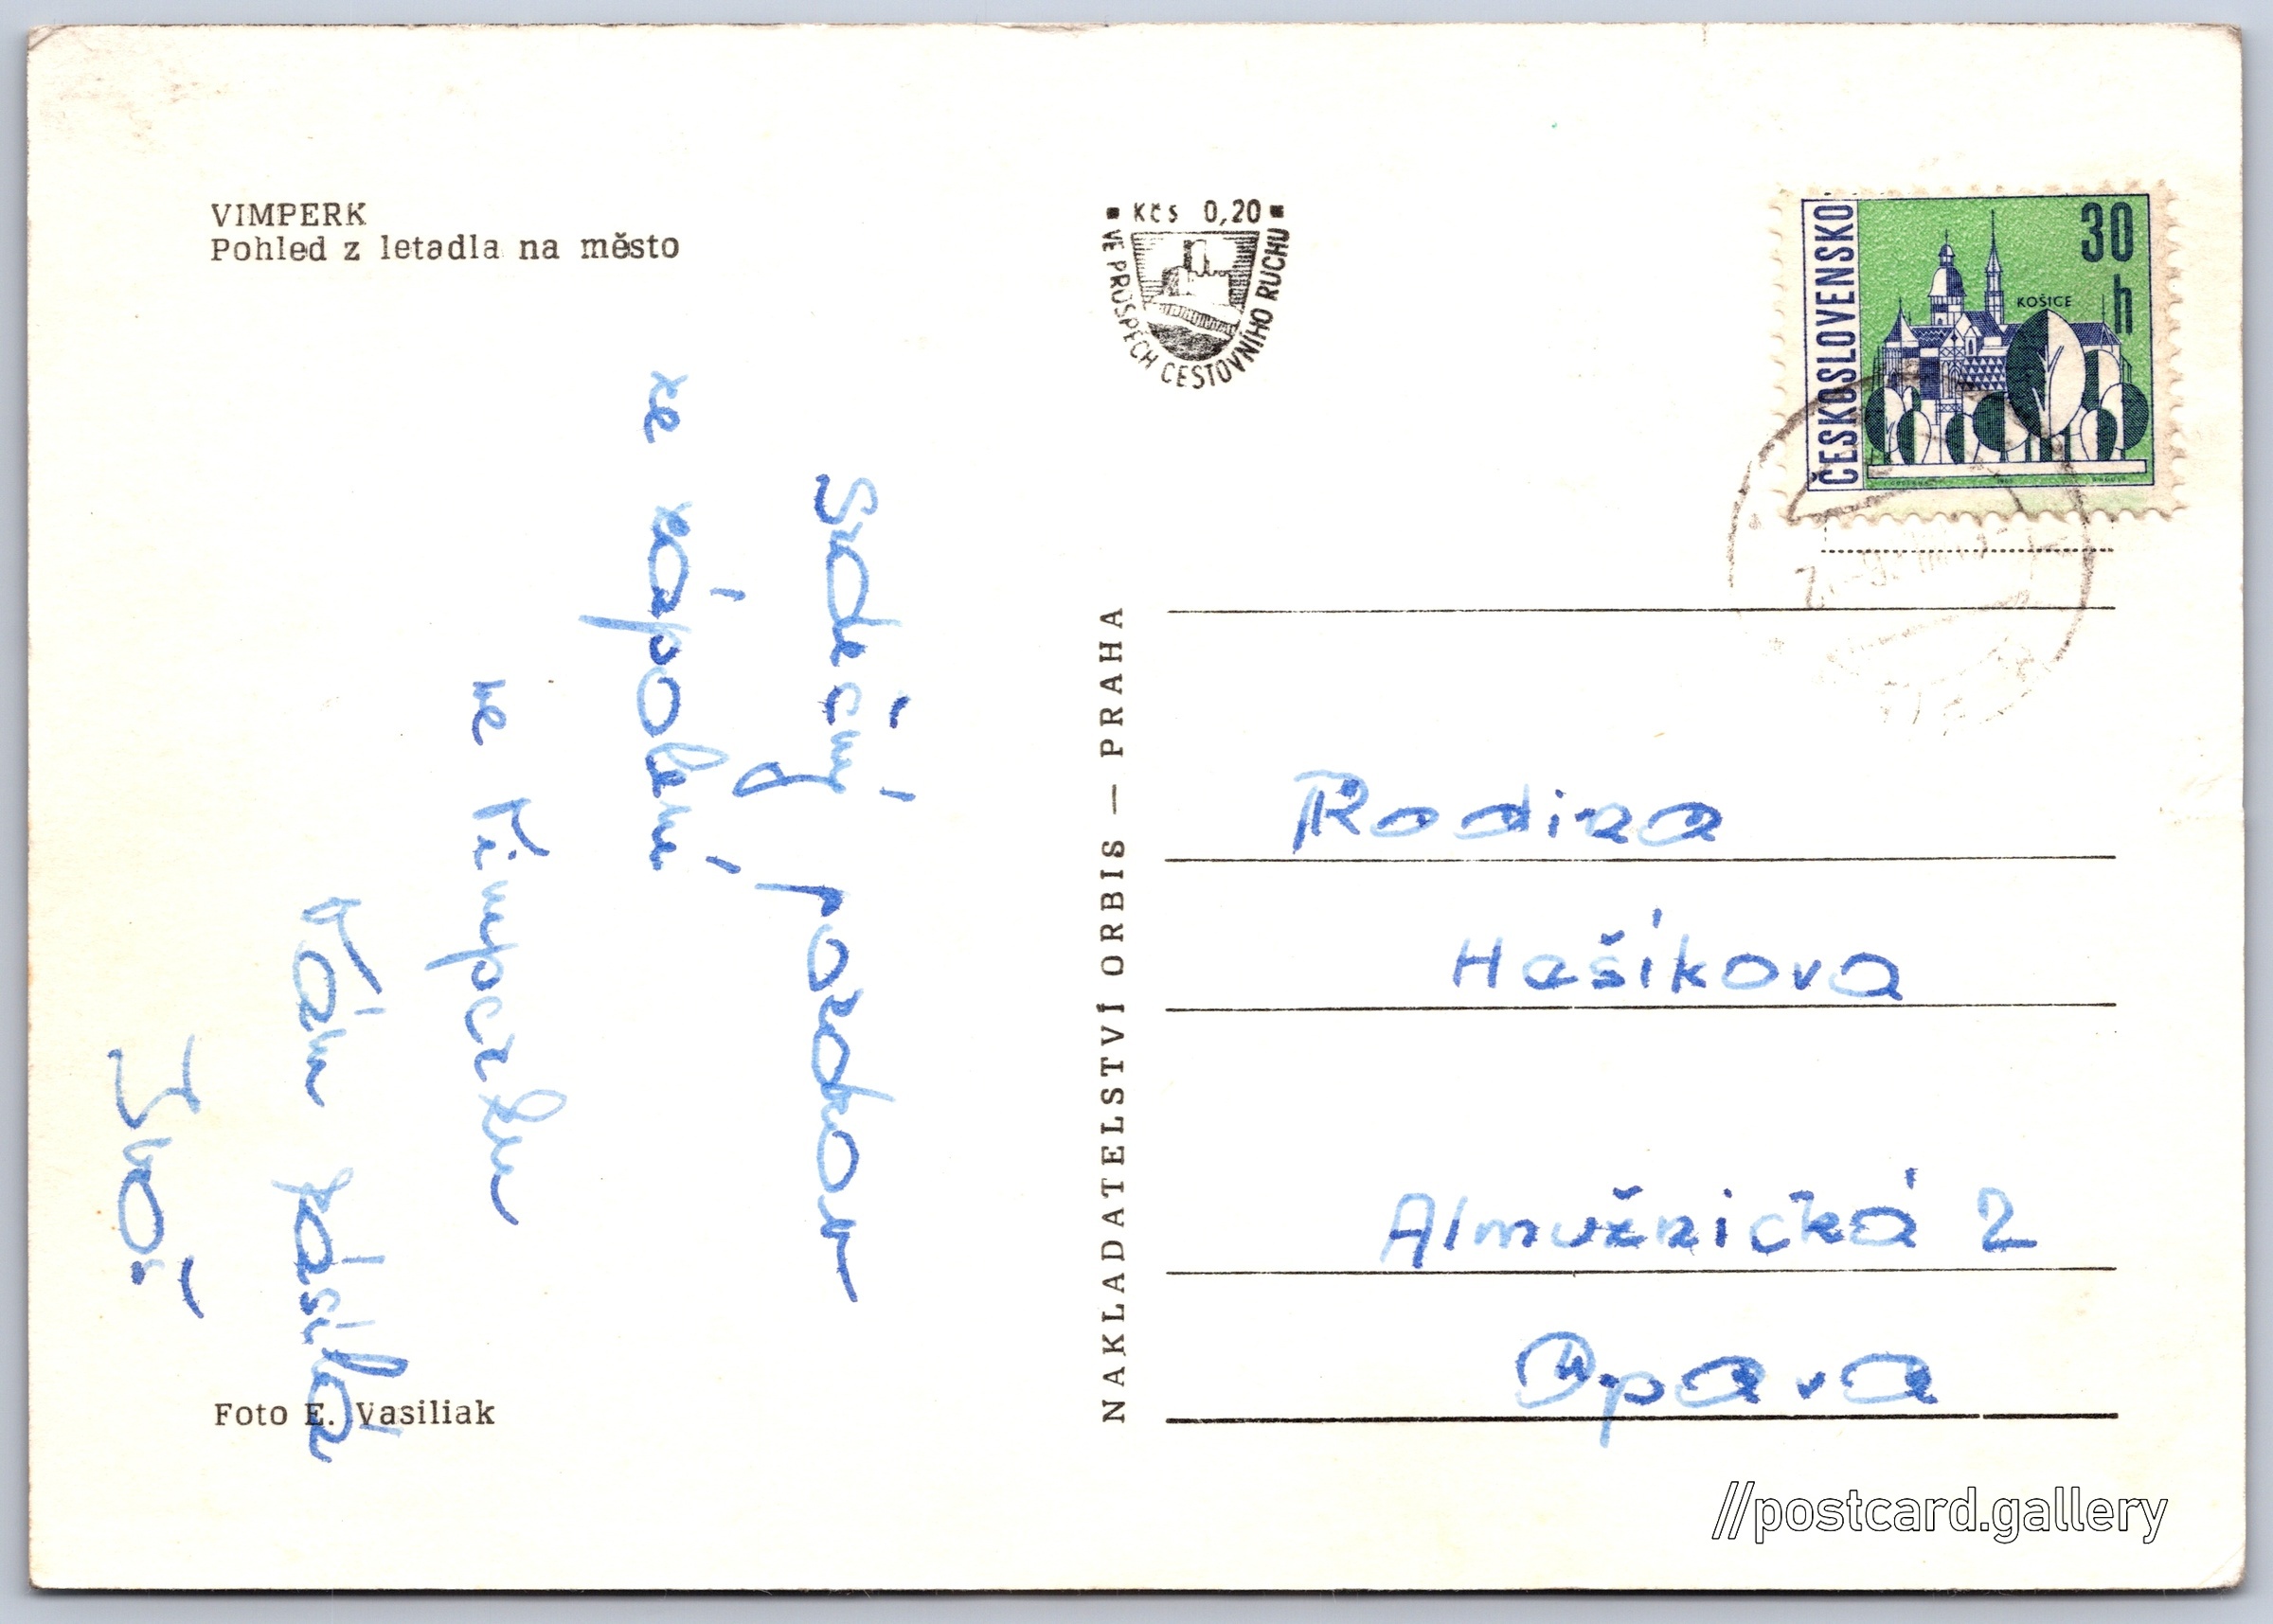 VIMPERK
Pohled z letadla na město
Srdečný pozdrav
ze zápolení
ve Vimperku
Vám posílá
Foto E. Vasiliak
Kčs 0,20
VE PROSPĚCH CESTOVNÍHO RUCHU
NAKLADATELSTVÍ ORBIS — PRAHA
ČESKOSLOVENSKO
30
h
KOŠICE
Rodina
Hašíkova
Almužnická 2
Opava
//postcard.gallery